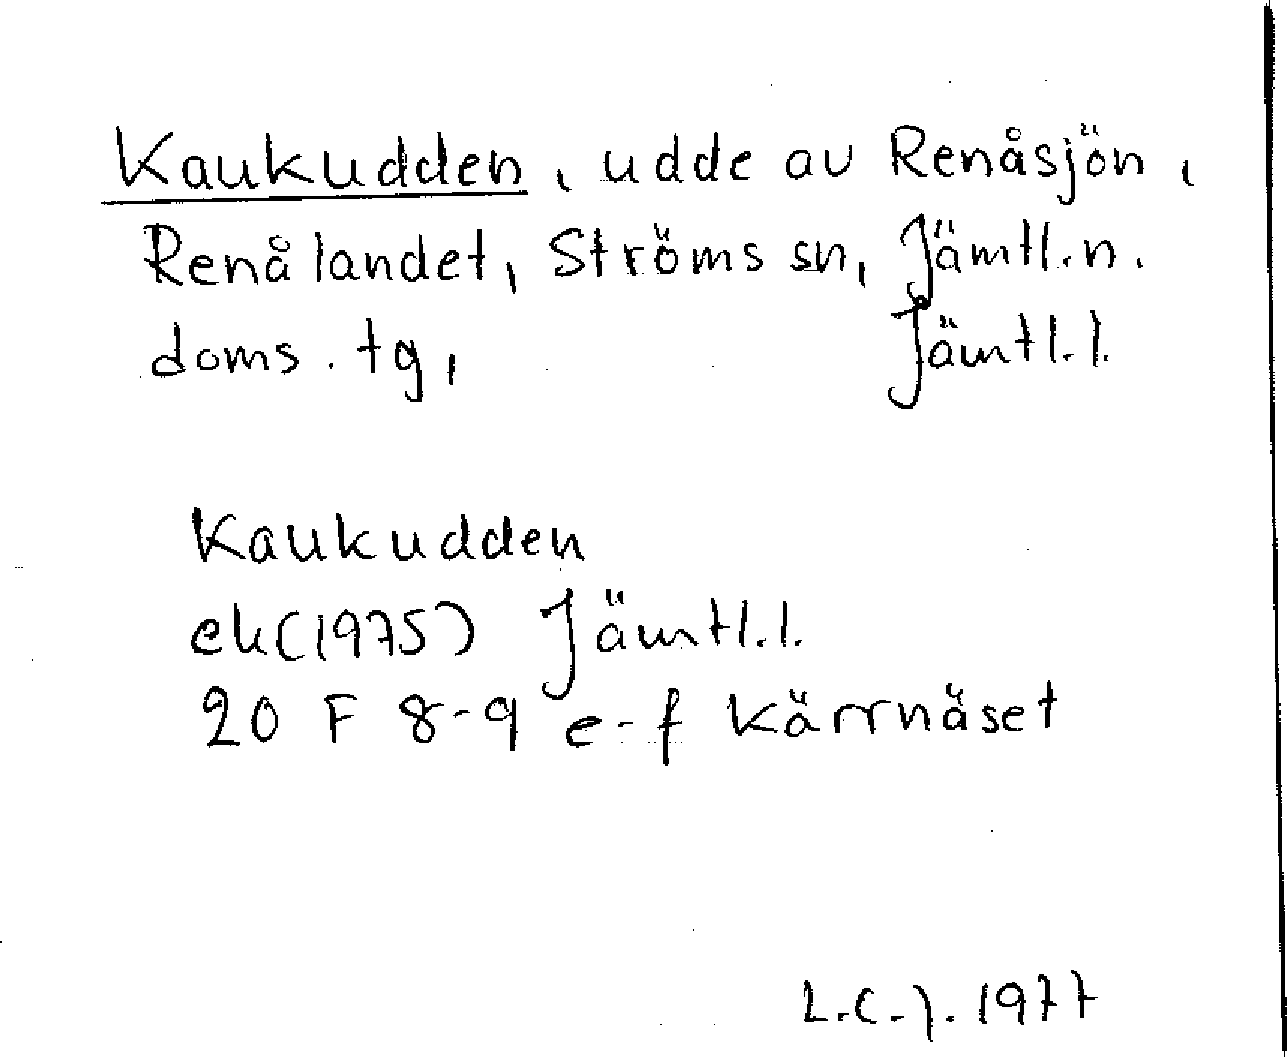 Kaukudden, udde av Renåsjön,
Renålandet, Ströms sn, Jämtl.n.
doms.tg, Jämtl.l.
Kaukudden
ek(1975) Jämtl.l.
20 F 8-9 e-f Kärrnäset
L.C-J. 1977